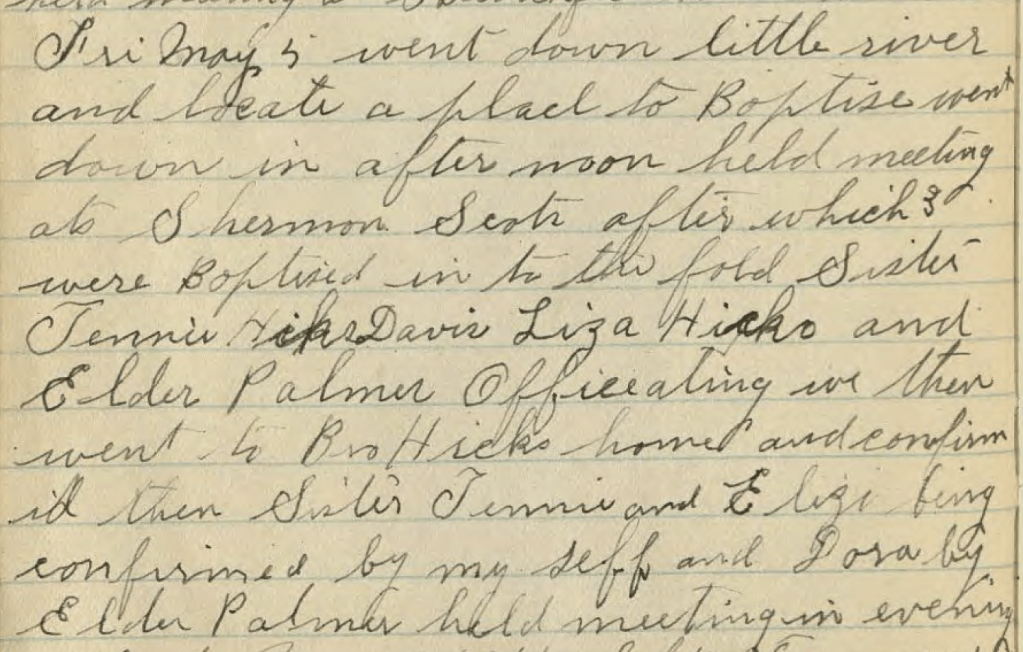 Fri May 5 went down little river
and locate a place to Baptise went
down in after noon held meeting
at Shermon Scott after which 3
were Baptised in to the fold Sister
Tennie Hicks Davis Liza Hicks and
Elder Palmer Officeating we then
went to Bro Hicks home and confirm
id then Sister Tennie and Elizi being
confirmed by my self and Dora by
Elder Palmer held meeting in evening